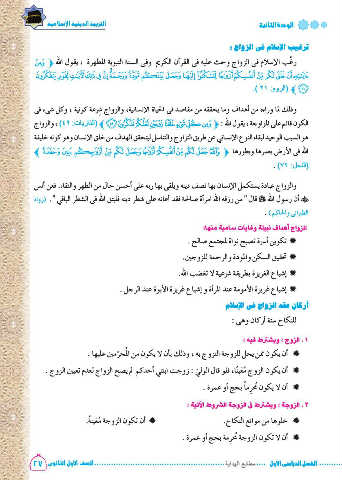 الوحدة الثانية
التربية الدينية الإسلامية
ترغيب الإسلام فى الزواج :
رغَّب الإسلام فى الزواج وحث عليه فى القرآن الكريم وفى السنة النبوية المطهرة ، يقول الله ﴿ وَمِنْ
ءَايَٰتِهِۦٓ أَنْ خَلَقَ لَكُم مِّنْ أَنفُسِكُمْ أَزْوَٰجًا لِّتَسْكُنُوٓا۟ إِلَيْهَا وَجَعَلَ بَيْنَكُم مَّوَدَّةً وَرَحْمَةً إِنَّ فِى ذَٰلِكَ لَءَايَٰتٍ لِّقَوْمٍ يَتَفَكَّرُونَ
﴾ (الروم: ٢١).
وذلك لما وراءه من أهداف وما يحققه من مقاصد فى الحياة الإنسانية، والزواج شرعة كونية ، وكل شىء فى
الكون قائم على المزاوجة ، يقول الله : ﴿ وَمِن كُلِّ شَىْءٍ خَلَقْنَا زَوْجَيْنِ لَعَلَّكُمْ تَذَكَّرُونَ ﴾ (الذاريات: ٤٩) ، والزواج
هو السبب الوحيد لبقاء النوع الإنسانى عن طريق التزاوج والتناسل ليتحقق الهدف من خلق الإنسان وهو كونه خليفة
الله فى الأرض يعمرها ويطورها ﴿ وَٱللَّهُ جَعَلَ لَكُم مِّنْ أَنفُسِكُمْ أَزْوَٰجًا وَجَعَلَ لَكُم مِّنْ أَزْوَٰجِكُم بَنِينَ وَحَفَدَةً ﴾
(النحل: ٧٢) .
والزواج عبادة يستكمل الإنسان بها نصف دينه ويلقى بها ربه على أحسن حال من الطهر والنقاء. فعن أنس
أن رسول الله ﷺ قال " من رزقه الله امرأة صالحة فقد أعانه على شطر دينه فليتق الله فى الشطر الباقى ". (رواه
الطبرانى والحاكم) .
للزواج أهداف نبيلة وغايات سامية منها:
تكوين أسرة تصبح نواة لمجتمع صالح.
تحقيق السكن والمودة والرحمة للزوجين.
إشباع الغريزة بطريقة شرعية لا تغضب الله.
إشباع غريزة الأمومة عند المرأة و إشباع غريزة الأبوة عند الرجل.
أركان عقد الزواج فى الإسلام
للنكاح ستة أركان وهى :
١ . الزوج : ويشترط فيه :
أن يكون ممن يحل للزوجة التزوج به ، وذلك بأن لا يكون من المُحرَّمين عليها .
أن يكون الزوج مُعيَّنًا، فلو قال الولىّ: زوجت ابنتى أحدكم لم يصح الزواج لعدم تعيين الزوج .
أن لا يكون مُحرِمًا بحج أو عمرة .
٢ . الزوجة : ويشترط فى الزوجة الشروط الآتية :
خلوها من موانع النكاح.
أن تكون الزوجة مُعَيَّنة.
أن لا تكون الزوجة مُحرمة بحج أو عمرة .
الفصل الدراسى الأول
مطابع
الصف الأول الثانوى
٢٧